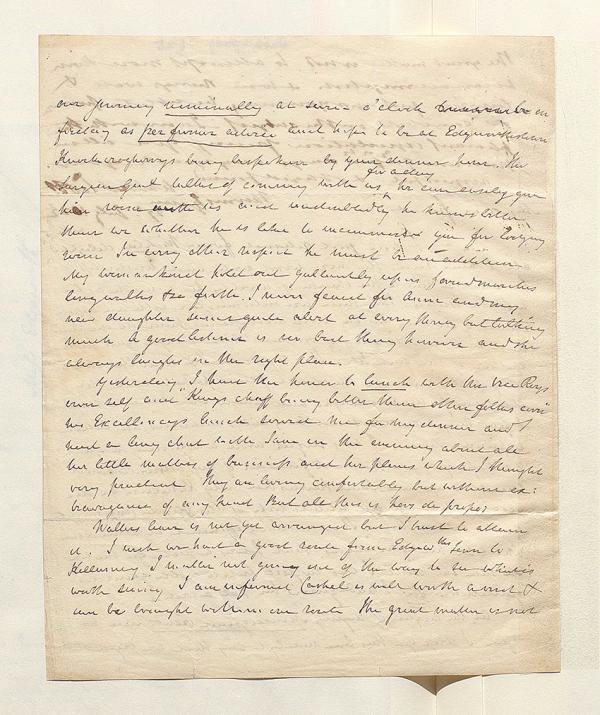 our journey nominally at seven o'clock on
friday as per former advice and hope to be at Edgeworthstown
being bespoken by your dinner hour. The
Surgeon Genl talks of coming with us for a day he can easily give
him room with us and undoubtedly he knows better
than we whether he is like to incommode you for lodging
room In every other respect he must be an addition.
My womankind hold out gallantly upon forced marches
long walks & so forth. I never feared for Anne and my
new daughter seems quite alert at every thing but talking
much A good listener is no bad thing however and she
always laughs in the right place.
Yesterday I had the honor to lunch with the Vice Roys
own self and Kings chaff being better than other folks corn
his Excellencys lunch served me for my dinner and I
had a long chat with Jane in the evening about all
her little matters of business and her plans which I thought
very prudent They are living comfortably but without ex:
travagance of any kind But all this is hors de propos
Walters leave is not yet arranged but I trust to attain
it. I wish we had a good route from Edgewths town to
Killarney I matter not going out of the way to see what is
worth seeing I am informed Cashel is well worth a visit &
can be brought within our route The great matter is not